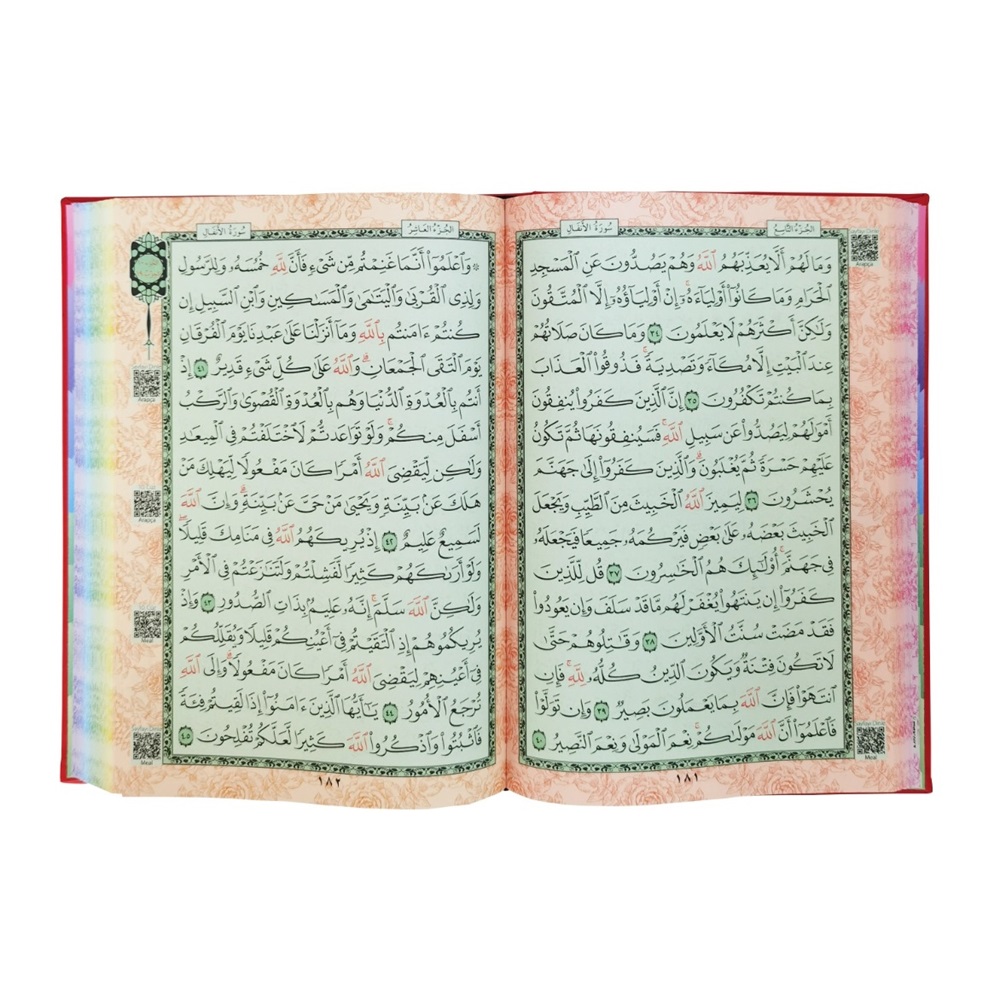 الجزء التاسع
سورة الأنفال
وَمَا لَهُمْ أَلَّا يُعَذِّبَهُمُ ٱللَّهُ وَهُمْ يَصُدُّونَ عَنِ ٱلْمَسْجِدِ
ٱلْحَرَامِ وَمَا كَانُوٓا۟ أَوْلِيَآءَهُۥٓ ۚ إِنْ أَوْلِيَآؤُهُۥٓ إِلَّا ٱلْمُتَّقُونَ
وَلَـٰكِنَّ أَكْثَرَهُمْ لَا يَعْلَمُونَ ٣٤ وَمَا كَانَ صَلَاتُهُمْ
عِندَ ٱلْبَيْتِ إِلَّا مُكَآءً وَتَصْدِيَةً ۚ فَذُوقُوا۟ ٱلْعَذَابَ
بِمَا كُنتُمْ تَكْفُرُونَ ٣٥ إِنَّ ٱلَّذِينَ كَفَرُوا۟ يُنفِقُونَ
أَمْوَٰلَهُمْ لِيَصُدُّوا۟ عَن سَبِيلِ ٱللَّهِ ۚ فَسَيُنفِقُونَهَا ثُمَّ تَكُونُ
عَلَيْهِمْ حَسْرَةً ثُمَّ يُغْلَبُونَ ۗ وَٱلَّذِينَ كَفَرُوٓا۟ إِلَىٰ جَهَنَّمَ
يُحْشَرُونَ ٣٦ لِيَمِيزَ ٱللَّهُ ٱلْخَبِيثَ مِنَ ٱلطَّيِّبِ وَيَجْعَلَ
ٱلْخَبِيثَ بَعْضَهُۥ عَلَىٰ بَعْضٍ فَيَرْكُمَهُۥ جَمِيعًا فَيَجْعَلَهُۥ
فِى جَهَنَّمَ ۚ أُو۟لَـٰٓئِكَ هُمُ ٱلْخَـٰسِرُونَ ٣٧ قُل لِّلَّذِينَ
كَفَرُوٓا۟ إِن يَنتَهُوا۟ يُغْفَرْ لَهُم مَّا قَدْ سَلَفَ وَإِن يَعُودُوا۟
فَقَدْ مَضَتْ سُنَّتُ ٱلْأَوَّلِينَ ٣٨ وَقَـٰتِلُوهُمْ حَتَّىٰ
لَا تَكُونَ فِتْنَةٌ وَيَكُونَ ٱلدِّينُ كُلُّهُۥ لِلَّهِ ۚ فَإِنِ
ٱنتَهَوْا۟ فَإِنَّ ٱللَّهَ بِمَا يَعْمَلُونَ بَصِيرٌ ٣٩ وَإِن تَوَلَّوْا۟
فَٱعْلَمُوٓا۟ أَنَّ ٱللَّهَ مَوْلَىٰكُمْ ۚ نِعْمَ ٱلْمَوْلَىٰ وَنِعْمَ ٱلنَّصِيرُ ٤٠
١٨١
Meal
الجزء العاشر
سورة الأنفال
۞ وَٱعْلَمُوٓا۟ أَنَّمَا غَنِمْتُم مِّن شَىْءٍ فَأَنَّ لِلَّهِ خُمُسَهُۥ وَلِلرَّسُولِ
وَلِذِى ٱلْقُرْبَىٰ وَٱلْيَتَـٰمَىٰ وَٱلْمَسَـٰكِينِ وَٱبْنِ ٱلسَّبِيلِ إِن
كُنتُمْ ءَامَنتُم بِٱللَّهِ وَمَآ أَنزَلْنَا عَلَىٰ عَبْدِنَا يَوْمَ ٱلْفُرْقَانِ
يَوْمَ ٱلْتَقَى ٱلْجَمْعَانِ ۗ وَٱللَّهُ عَلَىٰ كُلِّ شَىْءٍ قَدِيرٌ ٤١ إِذْ
أَنتُم بِٱلْعُدْوَةِ ٱلدُّنْيَا وَهُم بِٱلْعُدْوَةِ ٱلْقُصْوَىٰ وَٱلرَّكْبُ
أَسْفَلَ مِنكُمْ ۚ وَلَوْ تَوَاعَدتُّمْ لَٱخْتَلَفْتُمْ فِى ٱلْمِيعَـٰدِ
وَلَـٰكِن لِّيَقْضِىَ ٱللَّهُ أَمْرًا كَانَ مَفْعُولًا لِّيَهْلِكَ مَنْ
هَلَكَ عَنۢ بَيِّنَةٍ وَيَحْيَىٰ مَنْ حَىَّ عَنۢ بَيِّنَةٍ ۗ وَإِنَّ ٱللَّهَ
لَسَمِيعٌ عَلِيمٌ ٤٢ إِذْ يُرِيكَهُمُ ٱللَّهُ فِى مَنَامِكَ قَلِيلًا ۖ
وَلَوْ أَرَىٰكَهُمْ كَثِيرًا لَّفَشِلْتُمْ وَلَتَنَـٰزَعْتُمْ فِى ٱلْأَمْرِ
وَلَـٰكِنَّ ٱللَّهَ سَلَّمَ ۗ إِنَّهُۥ عَلِيمٌۢ بِذَاتِ ٱلصُّدُورِ ٤٣ وَإِذْ
يُرِيكُمُوهُمْ إِذِ ٱلْتَقَيْتُمْ فِىٓ أَعْيُنِكُمْ قَلِيلًا وَيُقَلِّلُكُمْ
فِىٓ أَعْيُنِهِمْ لِيَقْضِىَ ٱللَّهُ أَمْرًا كَانَ مَفْعُولًا ۗ وَإِلَى ٱللَّهِ
تُرْجَعُ ٱلْأُمُورُ ٤٤ يَـٰٓأَيُّهَا ٱلَّذِينَ ءَامَنُوٓا۟ إِذَا لَقِيتُمْ فِئَةً
فَٱثْبُتُوا۟ وَٱذْكُرُوا۟ ٱللَّهَ كَثِيرًا لَّعَلَّكُمْ تُفْلِحُونَ ٤٥
١٨٢
Arapça
Arapça
Meal
Meal